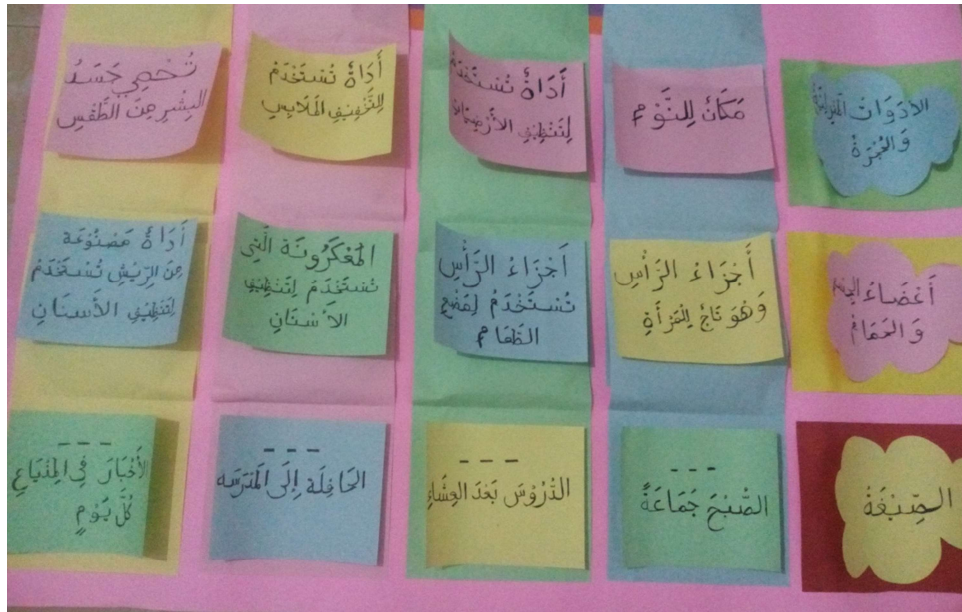 الأدَوَاتُ المَنْزِلِيَّة
وَالحُجْرَةُ
مَكَانٌ لِلنَّوْمِ
أَدَاةٌ تُسْتَخْدَمُ
لِتَنْظِيْفِ الأَرْضِيَّاتِ
أَدَاةٌ تُسْتَخْدَمُ
لِلتَّخْفِيْفِ المَلَابِسِ
تُحْمِي جَسَدُ
البَشَرِ مِنَ الطَّقْسِ
أَعْضَاءُ الجِسْمِ
وَ الحَمَّامُ
أَجْزَاءُ الرَّأْسِ
وَ هُوَ تَاجُ المَرْأَةِ
أَجْزَاءُ الرَّأْسِ
تُسْتَخْدَمُ لِمَضْغِ
الطَّعَامِ
المَعْكَرُونَة الَّتِي
تُسْتَخْدَمَ لِتَنْظِيْفِ
الاَسْنَانِ
أَدَاةٌ مَصْنُوْعَة
مِنَ الرِّيْشِ تُسْتَخْدَمُ
لِتَنْظِيْفِ الأَسْنَانِ
الصِّبْغَةُ
---
الصُّبْحَ جَمَاعَةً
---
الدُّرُوْسَ بَعْدَ العِشَاءِ
---
الحَافِلَة إِلَى المَدْرَسَه
---
الأَخْبَارَ فِي المِذْيَاعِ
كُلَّ يَوْمٍ